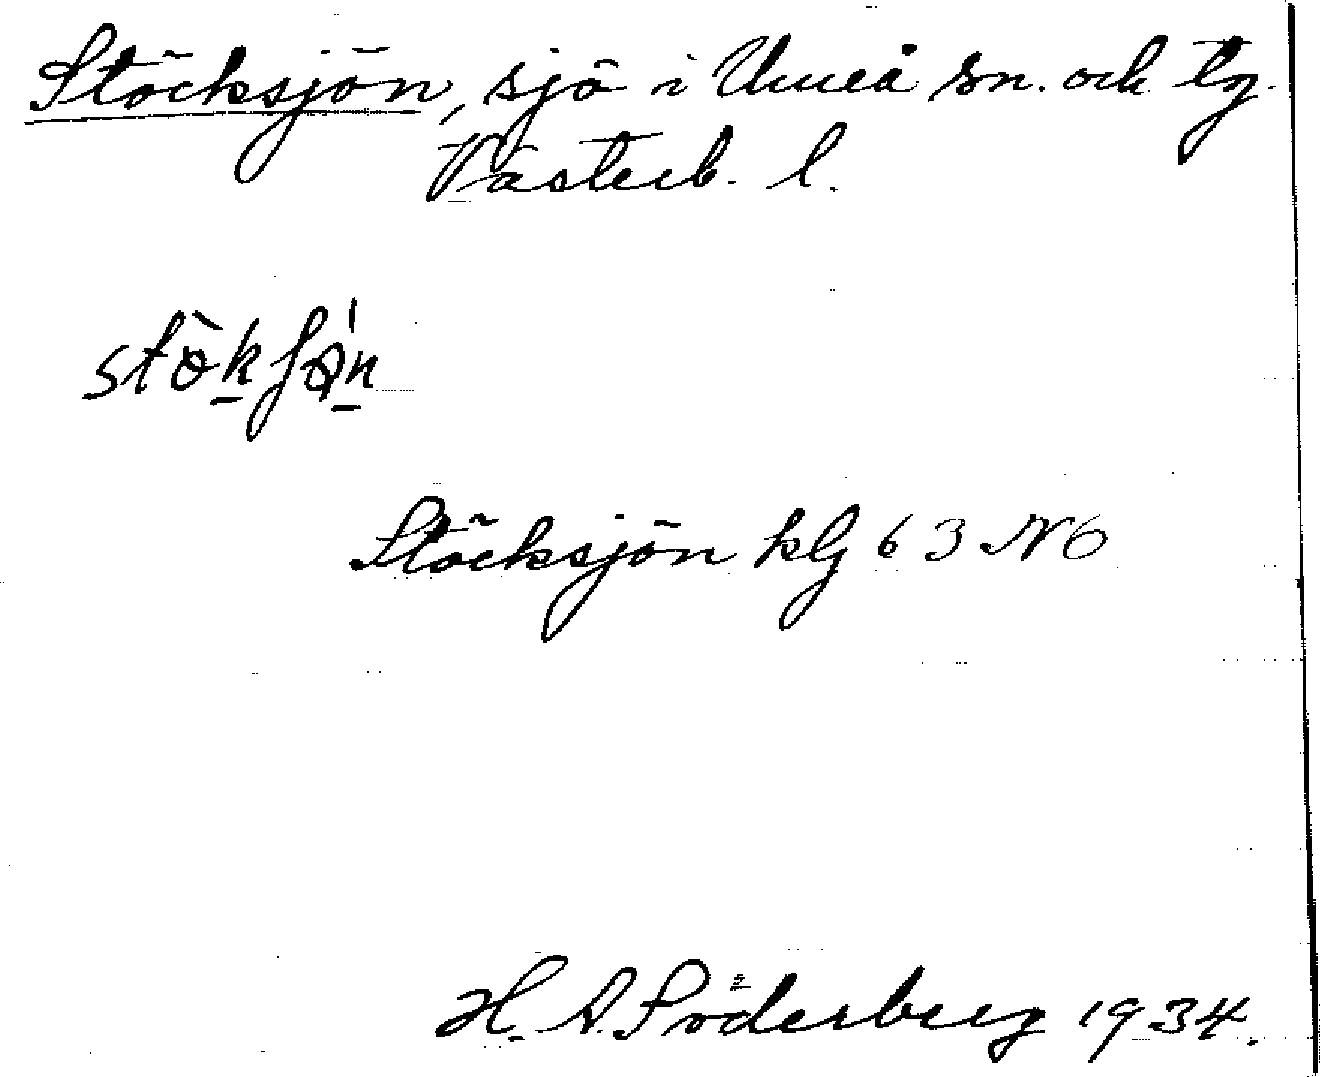 Stöcksjön, sjö i Umeå sn. och tg.
Västerb. l.
Stöcksjön kbl 63 NO
H. A. Söderberg 1934.